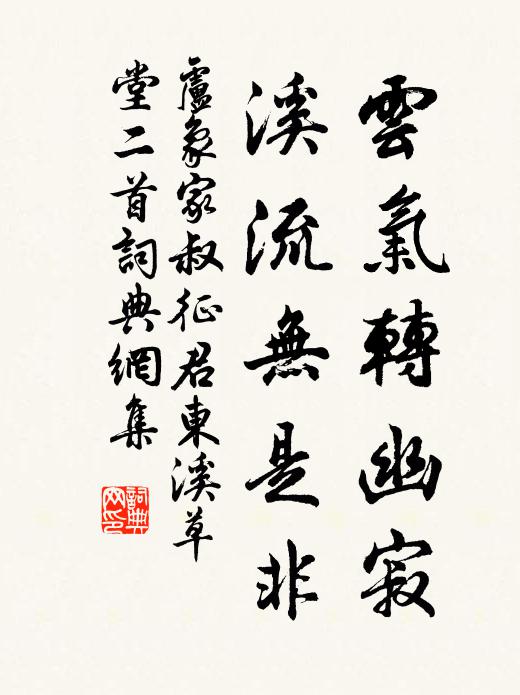 雲氣轉幽寂
溪流無是非
盧象家叔征君東溪草
堂二首詞典網集
詞典网印